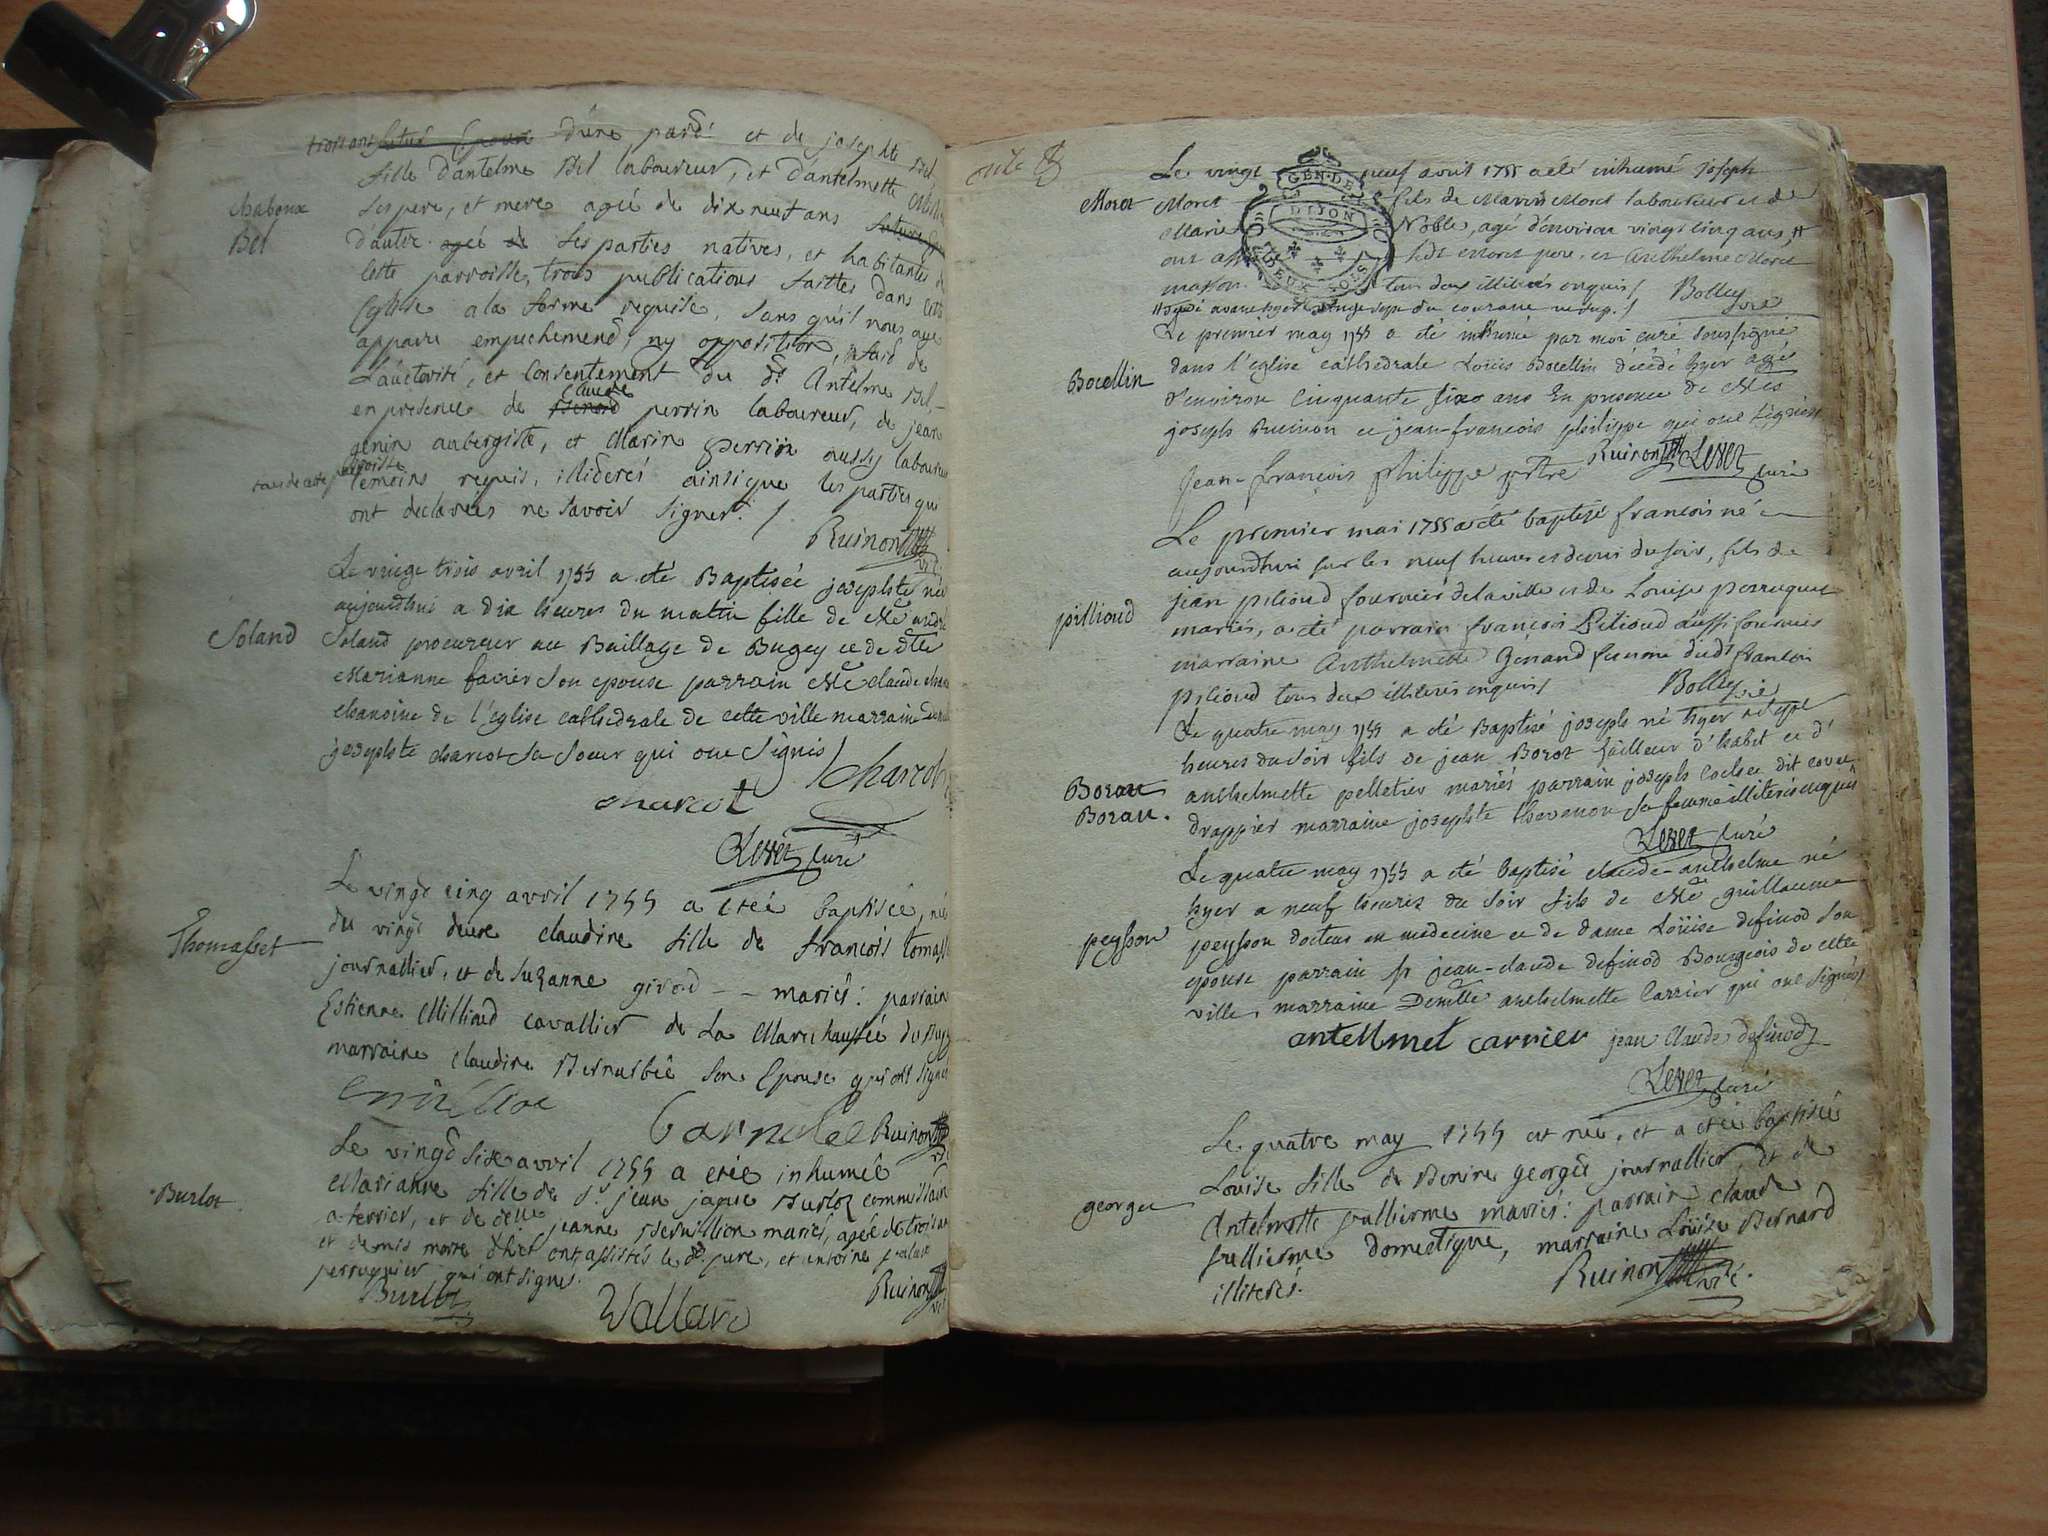 d'une part et de josephte Bel
fille d'antelme Bel laboureur, et d'antelmette
Chaboux
Bel
ses pere, et mere agée de dix neuf ans
d'autre ses parties natives, et habitantes de
cette parroisse, trois publications faittes dans cette
Eglise a la forme requise, sans qu'il nous aye
apparu empechement, ny opposition, de
L'auctorité, et Consentement du dt Antelme Bel,
en presence de Claude perrin laboureur, de jean
genin aubergiste, et Marin perrin aussy laboureur
tous de cette parroisse
temoins requis, illiderés ainsi que les parties qui
ont declarées ne savoir signer. /.
Ruinon vic.
Soland
Le vingt trois avril 1755 a eté Baptisée josephte née
aujourdhui a dix heures du matin fille de Me andré
Soland procureur au Bailliage de Bugey et de dlle
Marianne favier son epouse parrain Me claude
chanoine de l'eglise cathedrale de cette ville marraine
josephte charcot sa soeur qui ont signés /
charcot
charcot
Levet curé
Thomasset
Le vingt cinq avril 1755 a etée baptisée, née
du vingt deux claudine fille de francois tomasset
journallier, et de suzanne girod -- mariés: parrain
Estienne Milliond cavallier de La Marechaussée du Bugey
marraine claudine Bernarbée son Epouse qui ont signés
Ruinon vic
Burlot
Le vingt six avril 1755 a etée inhumée
Marianne fille de Sr. jean jaque Burlot commissaire
a terrier, et de delle jeanne Bervillion mariés, agée de trois ans
et demis morte d'hier ont assistés le dt. pere, et antoine
perruquier qui ont signes.
Burlot
Vallare
Ruinon vic
Morot
Le vingt neuf avril 1755 a été inhumé joseph
Moret fils de Marin Moret laboureur et de
Marie Noble, agé d'environ vingt cinq ans, #
ont assisté led. Moret pere et Anthelme Moret
masson tous deux illiterés enquis /
Bolley vic
GEN. DE
DIJON
DEUX SOLS
Bocellin
Le premier may 1755 a eté inhumé par moi curé soussigné
dans l'eglise cathedrale Loüis Bocellin décédé hyer agé
d'environ cinquante six ans En presence de Mes
joseph Ruinon et jean-francois philippe qui ont signés
Jean-françois philippe prêtre
Ruinon
Levet curé
pillioud
Le premier mai 1755 a été baptisé francois né
aujourdhui sur les neuf heures et demis du soir, fils de
jean pilioud fournier de la ville et de Louise perruquet
mariés, a eté parrain francois Pilioud aussi fournier
marraine Anthelmette Genand femme dudt francois
pilioud tous deux illiterés enquis /
Bolley vic
Borau
Borau.
Le quatre may 1755 a eté Baptisé joseph né hyer a sept
heures du soir fils de jean Borot tailleur d'habit et d'
anthelmette pelletier mariés parrain joseph
drappier marraine josephte thevenon sa femme illiterés enquis
Levet curé
peysson
Le quatre may 1755 a eté baptisé claude-anthelme né
hyer a neuf heures du soir fils de Me guillaume
peysson docteur en médecine et de dame Loüise definod son
epouse parrain sr jean-claude definod Bourgeois de cette
ville, marraine Demlle anthelmette Carrier qui ont signés /
antelmet carrier jean claude definod
Levet curé
georgee
Le quatre may 1755 est née, et a etée baptisée
Louise fille de Benine georgée journallier, et de
Antelmette vullierme mariés: parrain claude
vullierme domestique, marraine Loüise Bernard
illiterés.
Ruinon vic.